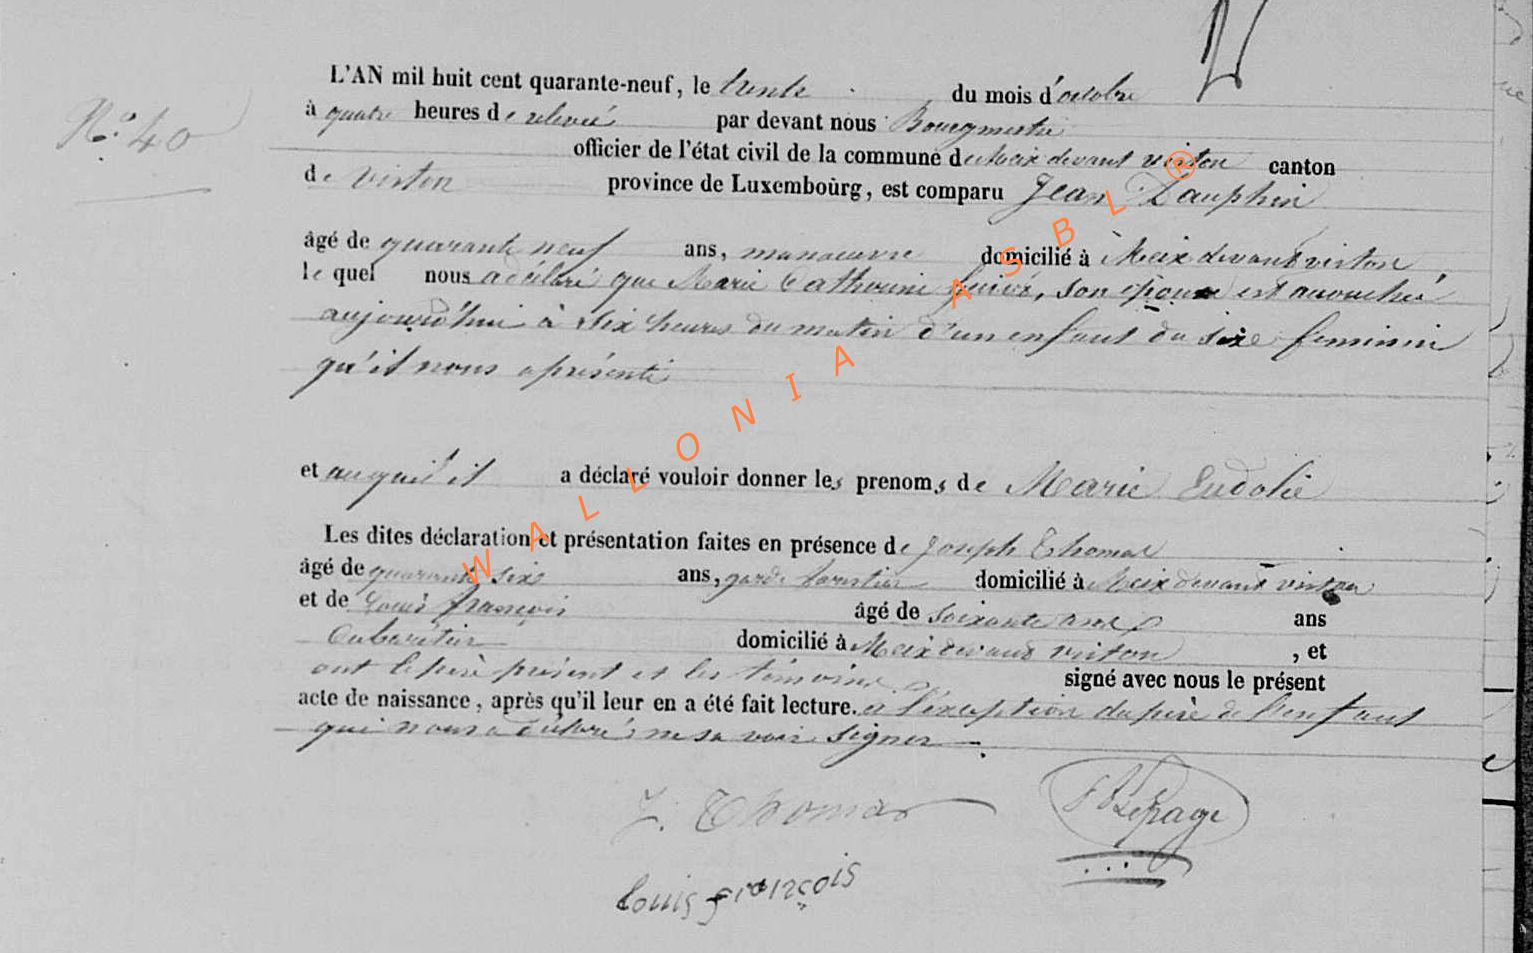 N.º 40
L'AN mil huit cent quarante-neuf, le trente du mois d'octobre
à quatre heures de relevée par devant nous Bourgmestre
officier de l'état civil de la commune de Meix devant virton canton
de virton province de Luxembourg, est comparu Jean Dauphin
âgé de quarante neuf ans, manoeuvre domicilié à Meix devant virton
le quel nous a déclaré que Marie Catherine, son épouse est accouchée
aujourd'hui à six heures du matin d'un enfant du sexe feminin
qu'il nous a présenté
et auquel il a déclaré vouloir donner les prenoms de Marie Eudolie
Les dites déclaration et présentation faites en présence de Joseph Thomas
âgé de quarante six ans, garde forestier domicilié à Meix devant virton
et de Louis françois âgé de soixante ans
Cabaretier domicilié à Meix devant virton, et
ont le père présent et les témoins signé avec nous le présent
acte de naissance, après qu'il leur en a été fait lecture. a l'exception du père de l'enfant
qui nous a déclaré ne savoir signer
J. Thomas
Lepage
Louis françois
WALLONIA ASBL ®